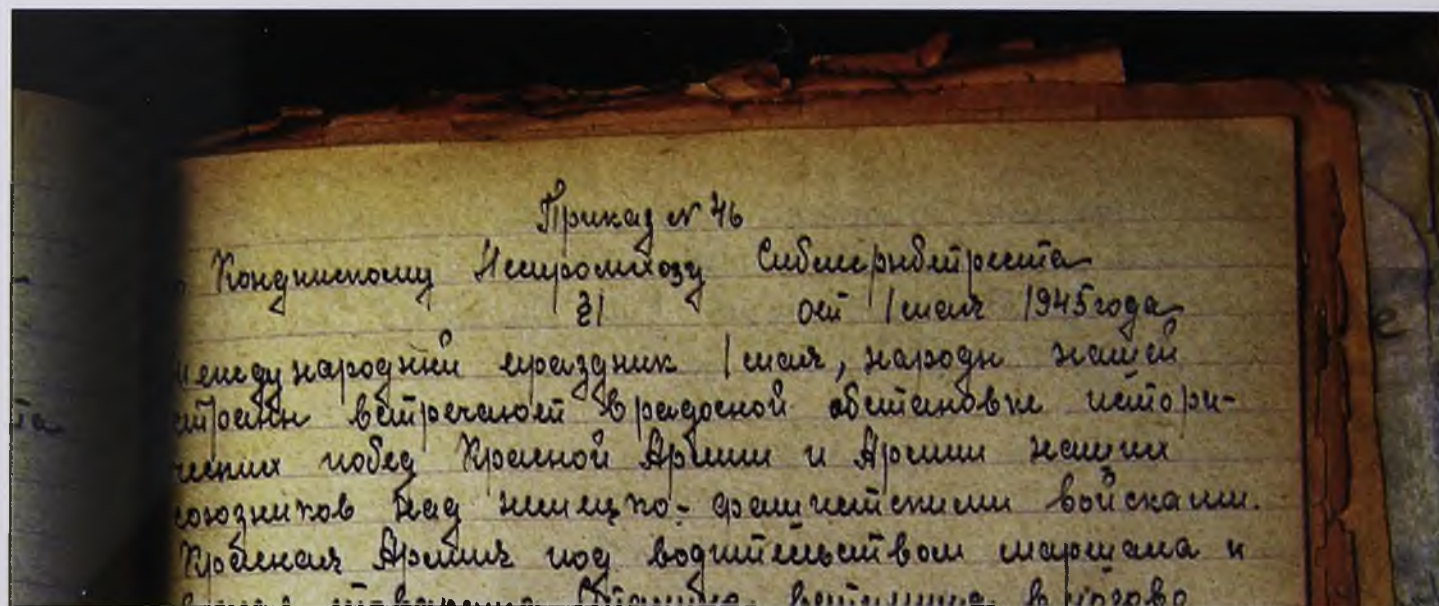 Приказ № 46
Кондинскому Сибмерибтреста
§1 от 1 мая 1945 года
Международный праздник 1 мая, народы нашей
страны встречают в радосной обстановке истори-
ческих побед Красной Армии и Армии наших
союзников над немецко-фашистскими войсками.
Красная Армия под водительством маршала и